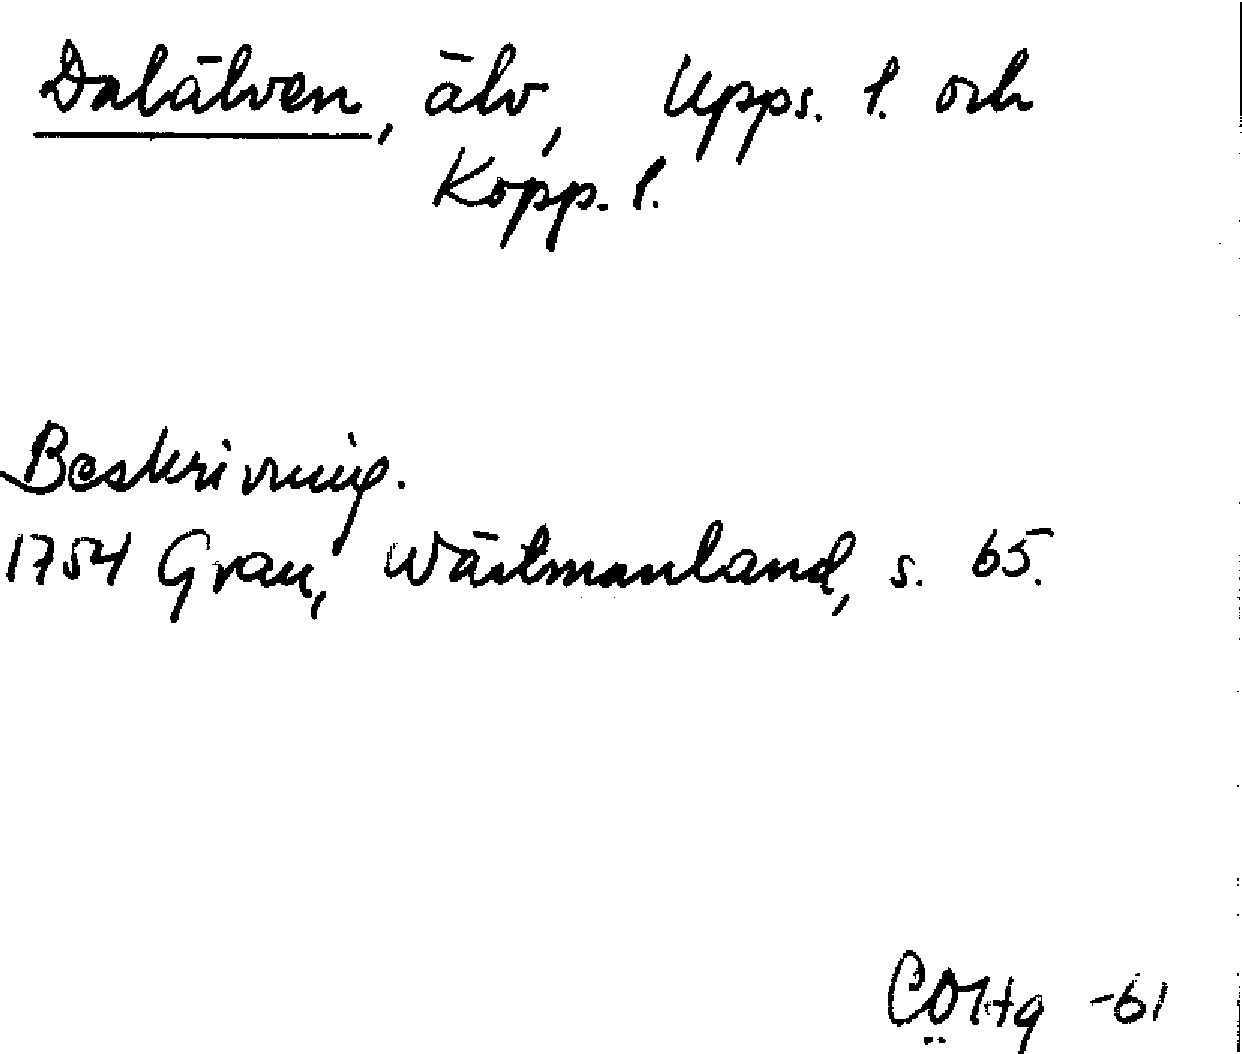 Dalälven, älv, Upps. l. och
Kopp. l.
Beskrivning.
1754 Grau, Wästmanland, s. 65.
-61